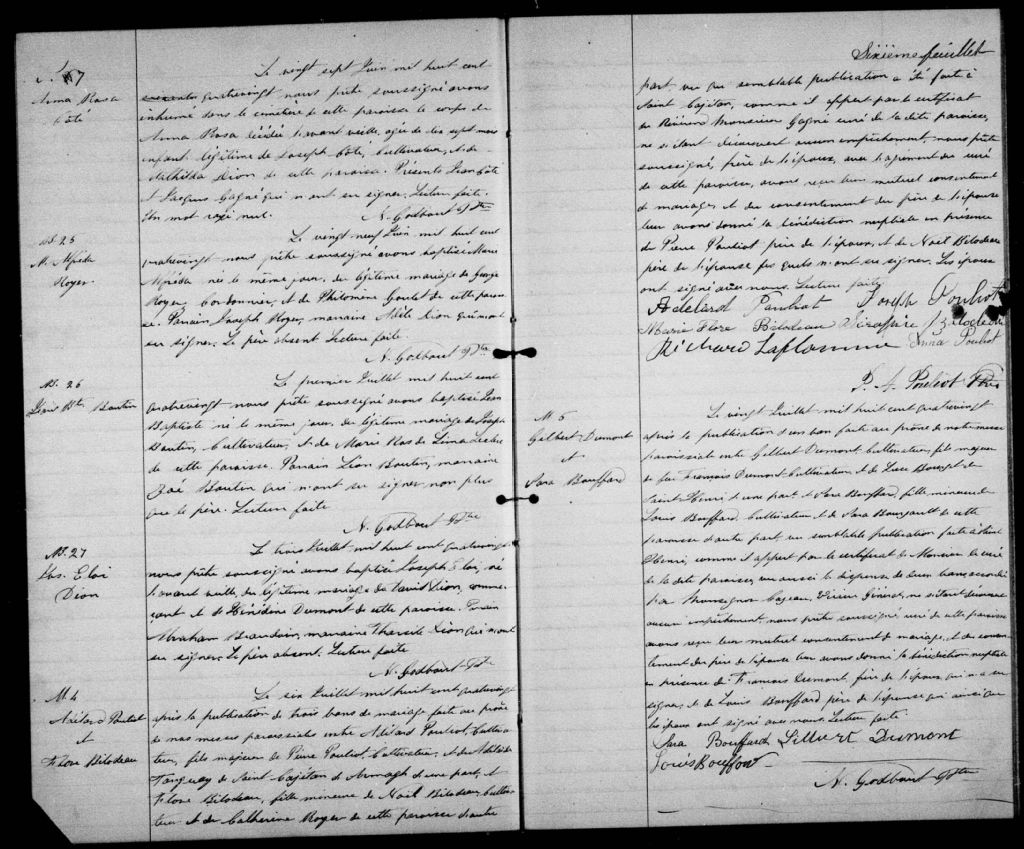 7
Anna Rosa
Côté
Le vingt sept Juin mil huit cent
quatrevingt nous prêtre soussigné avons
inhumé dans le cimetière de cette paroisse le corps de
Anna Rosa décédée l'avant veille, agée de dix sept mois
enfant légitime de Joseph Côté, Cultivateur, et de
Mathilda Dion de cette paroisse. Présents Jean Côté
et Jacques Gagné qui n'ont su signer. Lecture faite.
Un mot rayé nul.
N. Godbout Ptre
B. 25
M. Alfréda
Royer
Le vingt neuf Juin mil huit cent
quatrevingt nous prêtre soussigné avons baptisé Marie
Alfréda née le même jour, du légitime mariage de George
Royer, Cordonnier, et de Philomène Goulet de cette parois-
se. Parrain Joseph Royer, marraine Adèle Dion qui n'ont
su signer. Le père absent. Lecture faite.
N. Godbout Ptre
B. 26
Jean Bte. Boutin
Le premier Juillet mil huit cent
quatrevingt nous prêtre soussigné avons baptisé Jean
Baptiste né le même jour, du légitime mariage de Joseph
Boutin, Cultivateur, et de Marie Rose de Lima
de cette paroisse. Parrain Léon Boutin, marraine
Zoé Boutin qui n'ont su signer non plus
que le père. Lecture faite
N. Godbout Ptre
B. 27
Jos. Eloi
Dion
Le trois Juillet mil huit cent quatrevingt
nous prêtre soussigné avons baptisé Joseph Eloi, né
l'avant veille, du légitime mariage de David Dion, commer-
çant et d'Hénédine Dumont de cette paroisse. Parrain
Abraham Beaudoin, marraine Tharsile Dion qui n'ont
su signer. Le père absent. Lecture faite
N. Godbout Ptre
M 4
Adélard Pouliot
et
Flore Bilodeau
Le six Juillet mil huit cent quatrevingt
après la publication de trois bans de mariage faite au prône
de nos messes paroissiales entre Adélard Pouliot, Cultiva-
teur, fils majeur de Pierre Pouliot, Cultivateur, et de Adélaïde
Tanguay de Saint-Cajétan d'Armagh d'une part, et
Flore Bilodeau, fille mineure de Noël Bilodeau, Cultiva-
teur et de Catherine Royer de cette paroisse d'autre
Sixième feuillet
part, vu que semblable publication a été faite à
Saint Cajétan, comme il appert par le certificat
du Révérend Monsieur Gagné curé de la dite paroisse,
ne s'étant découvert aucun empêchement, nous prêtre
soussigné, frère de l'époux, avec l'agrément du curé
de cette paroisse, avons reçu leur mutuel consentement
de mariage, et du consentement du père de l'épouse
leur avons donné la bénédiction nuptiale en présence
de Pierre Pouliot père de l'époux, et de Noël Bilodeau
père de l'épouse lesquels n'ont su signer. Les époux
ont signé avec nous. Lecture faite
Adelard Pouliot Joseph Pouliot
Marie Flore Bilodeau Séraphie Bilodeau
Richard Laflamme Anna Pouliot
P. A. Pouliot Ptre
M 5
Gilbert Dumont
et
Sara Bouffard
Le vingt Juillet mil huit cent quatrevingt
après la publication d'un ban faite au prône de notre messe
paroissiale entre Gilbert Dumont, Cultivateur, fils majeur
de feu François Dumont, Cultivateur, et de Luce de
Saint-Henri d'une part, et Sara Bouffard, fille mineure de
Louis Bouffard, Cultivateur, et de Sara Bourgault de cette
paroisse d'autre part, vu semblable publication faite à Saint
Henri, comme il appert par le certificat de Monsieur le curé
de la dite paroisse, vu aussi la dispense de deux bans accordée
par Monseigneur Cazeau, Vicaire Général, ne s'étant découvert
aucun empêchement, nous prêtre soussigné, curé de cette paroisse
avons reçu leur mutuel consentement de mariage, et du consen-
tement du père de l'épouse leur avons donné la bénédiction nuptiale
en présence de François Dumont, frère de l'époux qui n'a su
signer, et de Louis Bouffard père de l'épouse qui ainsi que
les époux ont signé avec nous. Lecture faite.
Sara Bouffard Gilbert Dumont
Louis Bouffard
N. Godbout Ptre